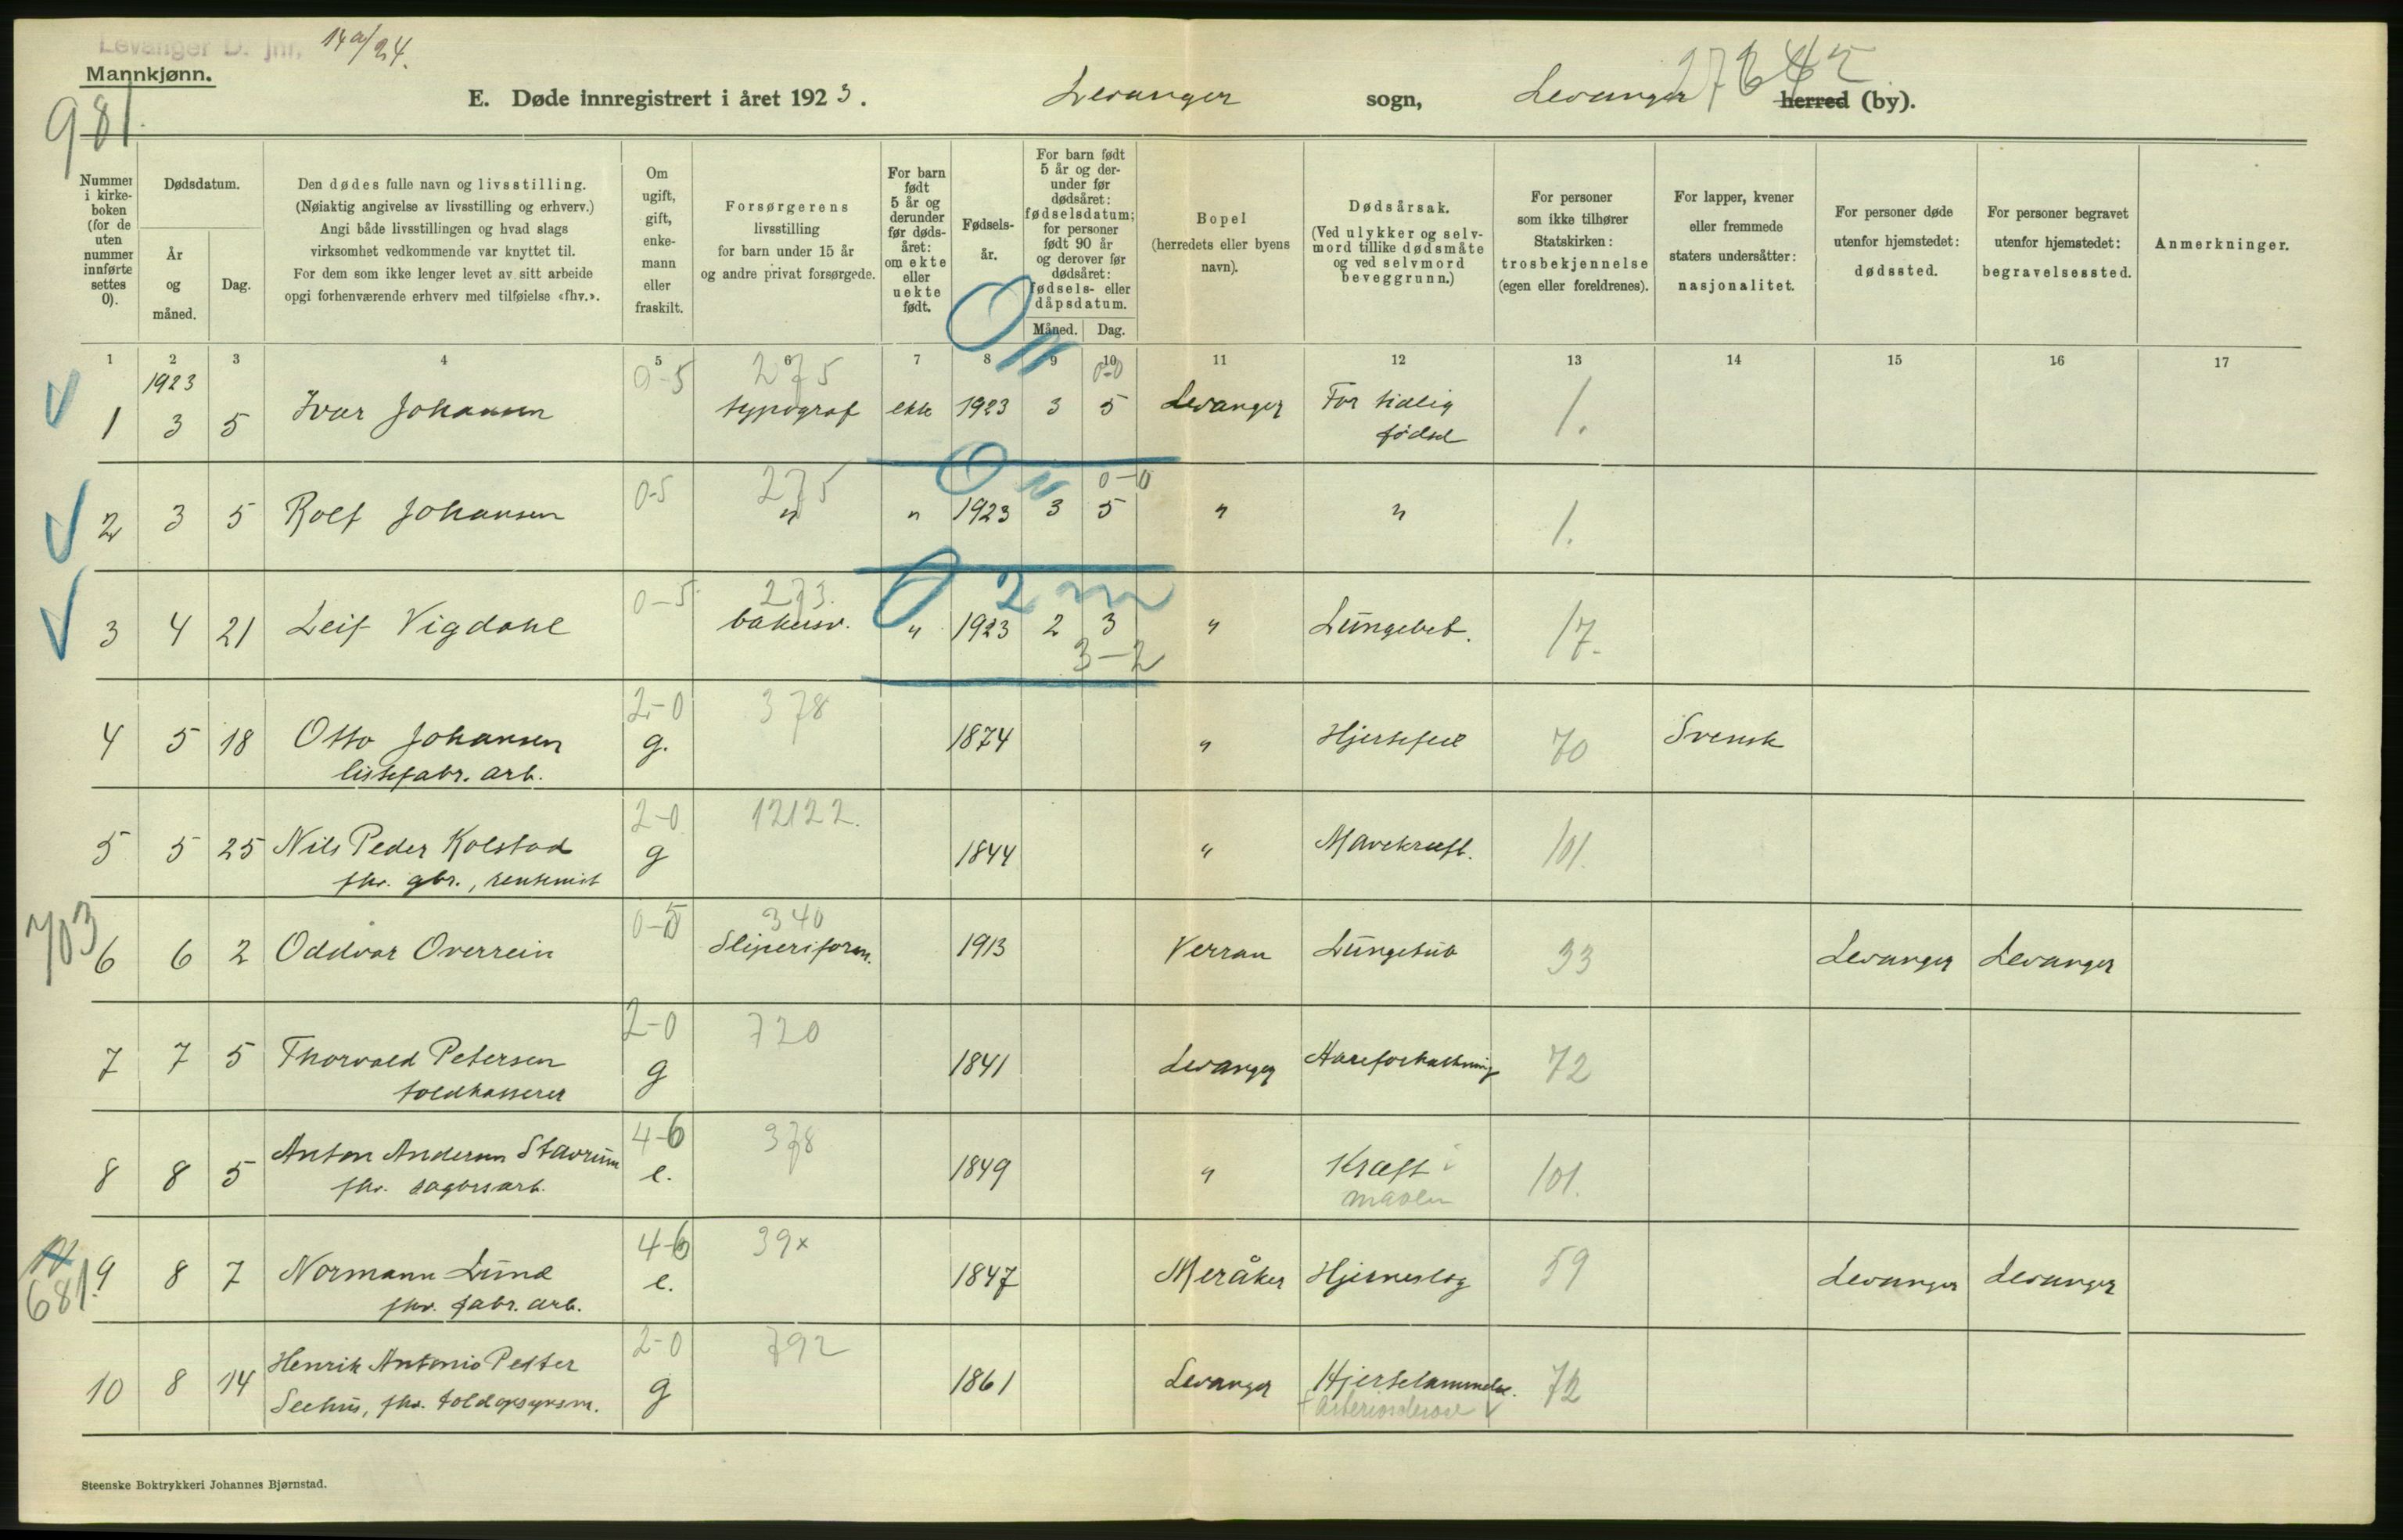 Levanger D. jnr. 14a/24.
Mannkjønn.
981.
E. Døde innregistrert i året 1923. Levanger sogn, Levanger herred (by).
Nummer i kirkeboken (for de uten nummer innførte settes 0).
Dødsdatum.
År og måned.
Dag.
Den dødes fulle navn og livsstilling.
(Nøiaktig angivelse av livsstilling og erhverv.)
Angi både livsstillingen og hvad slags
virksomhet vedkommende var knyttet til.
For dem som ikke lenger levet av sitt arbeide
opgi forhenværende erhverv med tilføielse «fhv.».
Om ugift, gift, enkemann eller fraskilt.
Forsørgerens
livsstilling
for barn under 15 år
og andre privat forsørgede.
For barn født 5 år og derunder før dødsåret: om ekte eller uekte født.
Fødselsår.
For barn født 5 år og derunder før dødsåret: fødselsdatum; for personer født 90 år og derover før dødsåret: fødsels- eller dåpsdatum.
Måned.
Dag.
Bopel
(herredets eller byens
navn).
Dødsårsak.
(Ved ulykker og selvmord tillike dødsmåte og ved selvmord beveggrunn.)
For personer
som ikke tilhører
Statskirken:
trosbekjennelse
(egen eller foreldrenes).
For lapper, kvener
eller fremmede
staters undersåtter:
nasjonalitet.
For personer døde
utenfor hjemstedet:
dødssted.
For personer begravet
utenfor hjemstedet:
begravelsessted.
Anmerkninger.
1 2 3 4 5 6 7 8 9 10 11 12 13 14 15 16 17
1923 0-5 275 0-0
1 3 5 Ivar Johansen typograf ekte 1923 3 5 Levanger For tidlig fødsel 1.
0-5 275 0-0
2 3 5 Rolf Johansen " " 1923 3 5 " " 1.
0-5 273. 2 m
3 4 21 Leif Vigdahl bakersv. " 1923 2 3 " Lungebet. 17.
3-2
2-0 378
4 5 18 Otto Johansen g. 1874 " Hjertefeil 70 Svensk
listefabr. arb.
2-0 12122.
5 5 25 Nils Peder Kolstad g 1844 " Mavekræft. 101.
fhv. gbr., rentenist
703 340
6 6 2 Oddvar Overrein 0-5 Sliperiform. 1913 Verran Lungetub 33 Levanger Levanger
2-0 720
7 7 5 Thorvald Petersen g 1841 Levanger Aareforkalkning 72
toldkasserer
4-6 378
8 8 5 Anton Andersen Stavrum e. 1849 " Kræft i maven 101.
fhv. sagbrsarb.
4-6 39x
681. 9 8 7 Normann Lund e. 1847 Meråker Hjerneslag 59 Levanger Levanger
fhv. fabr. arb.
2-0 792
10 8 14 Henrik Antonio Petter g 1861 Levanger Hjertelammelse. 72
Seehus, fhv. toldopsynsm.
Steenske Boktrykkeri Johannes Bjørnstad.